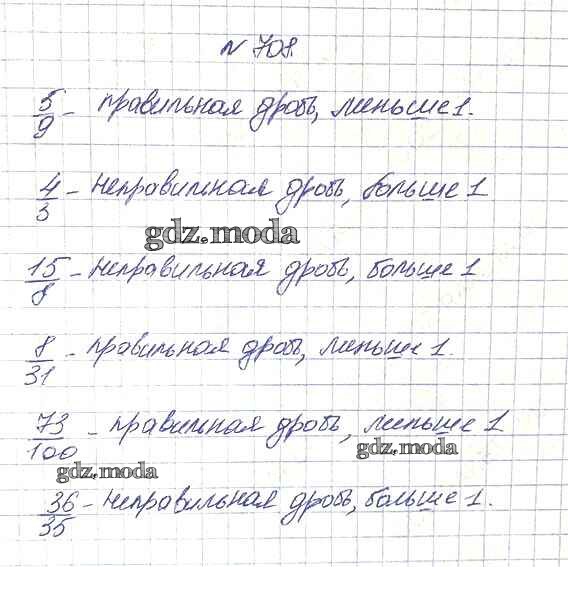 № 708.
5/9 - правильная дробь, меньше 1.
4/3 - неправильная дробь, больше 1
gdz.moda
15/8 - неправильная дробь, больше 1
8/31 - правильная дробь, меньше 1.
73/100 - правильная дробь, меньше 1
gdz.moda
gdz.moda
36/35 - неправильная дробь, больше 1.